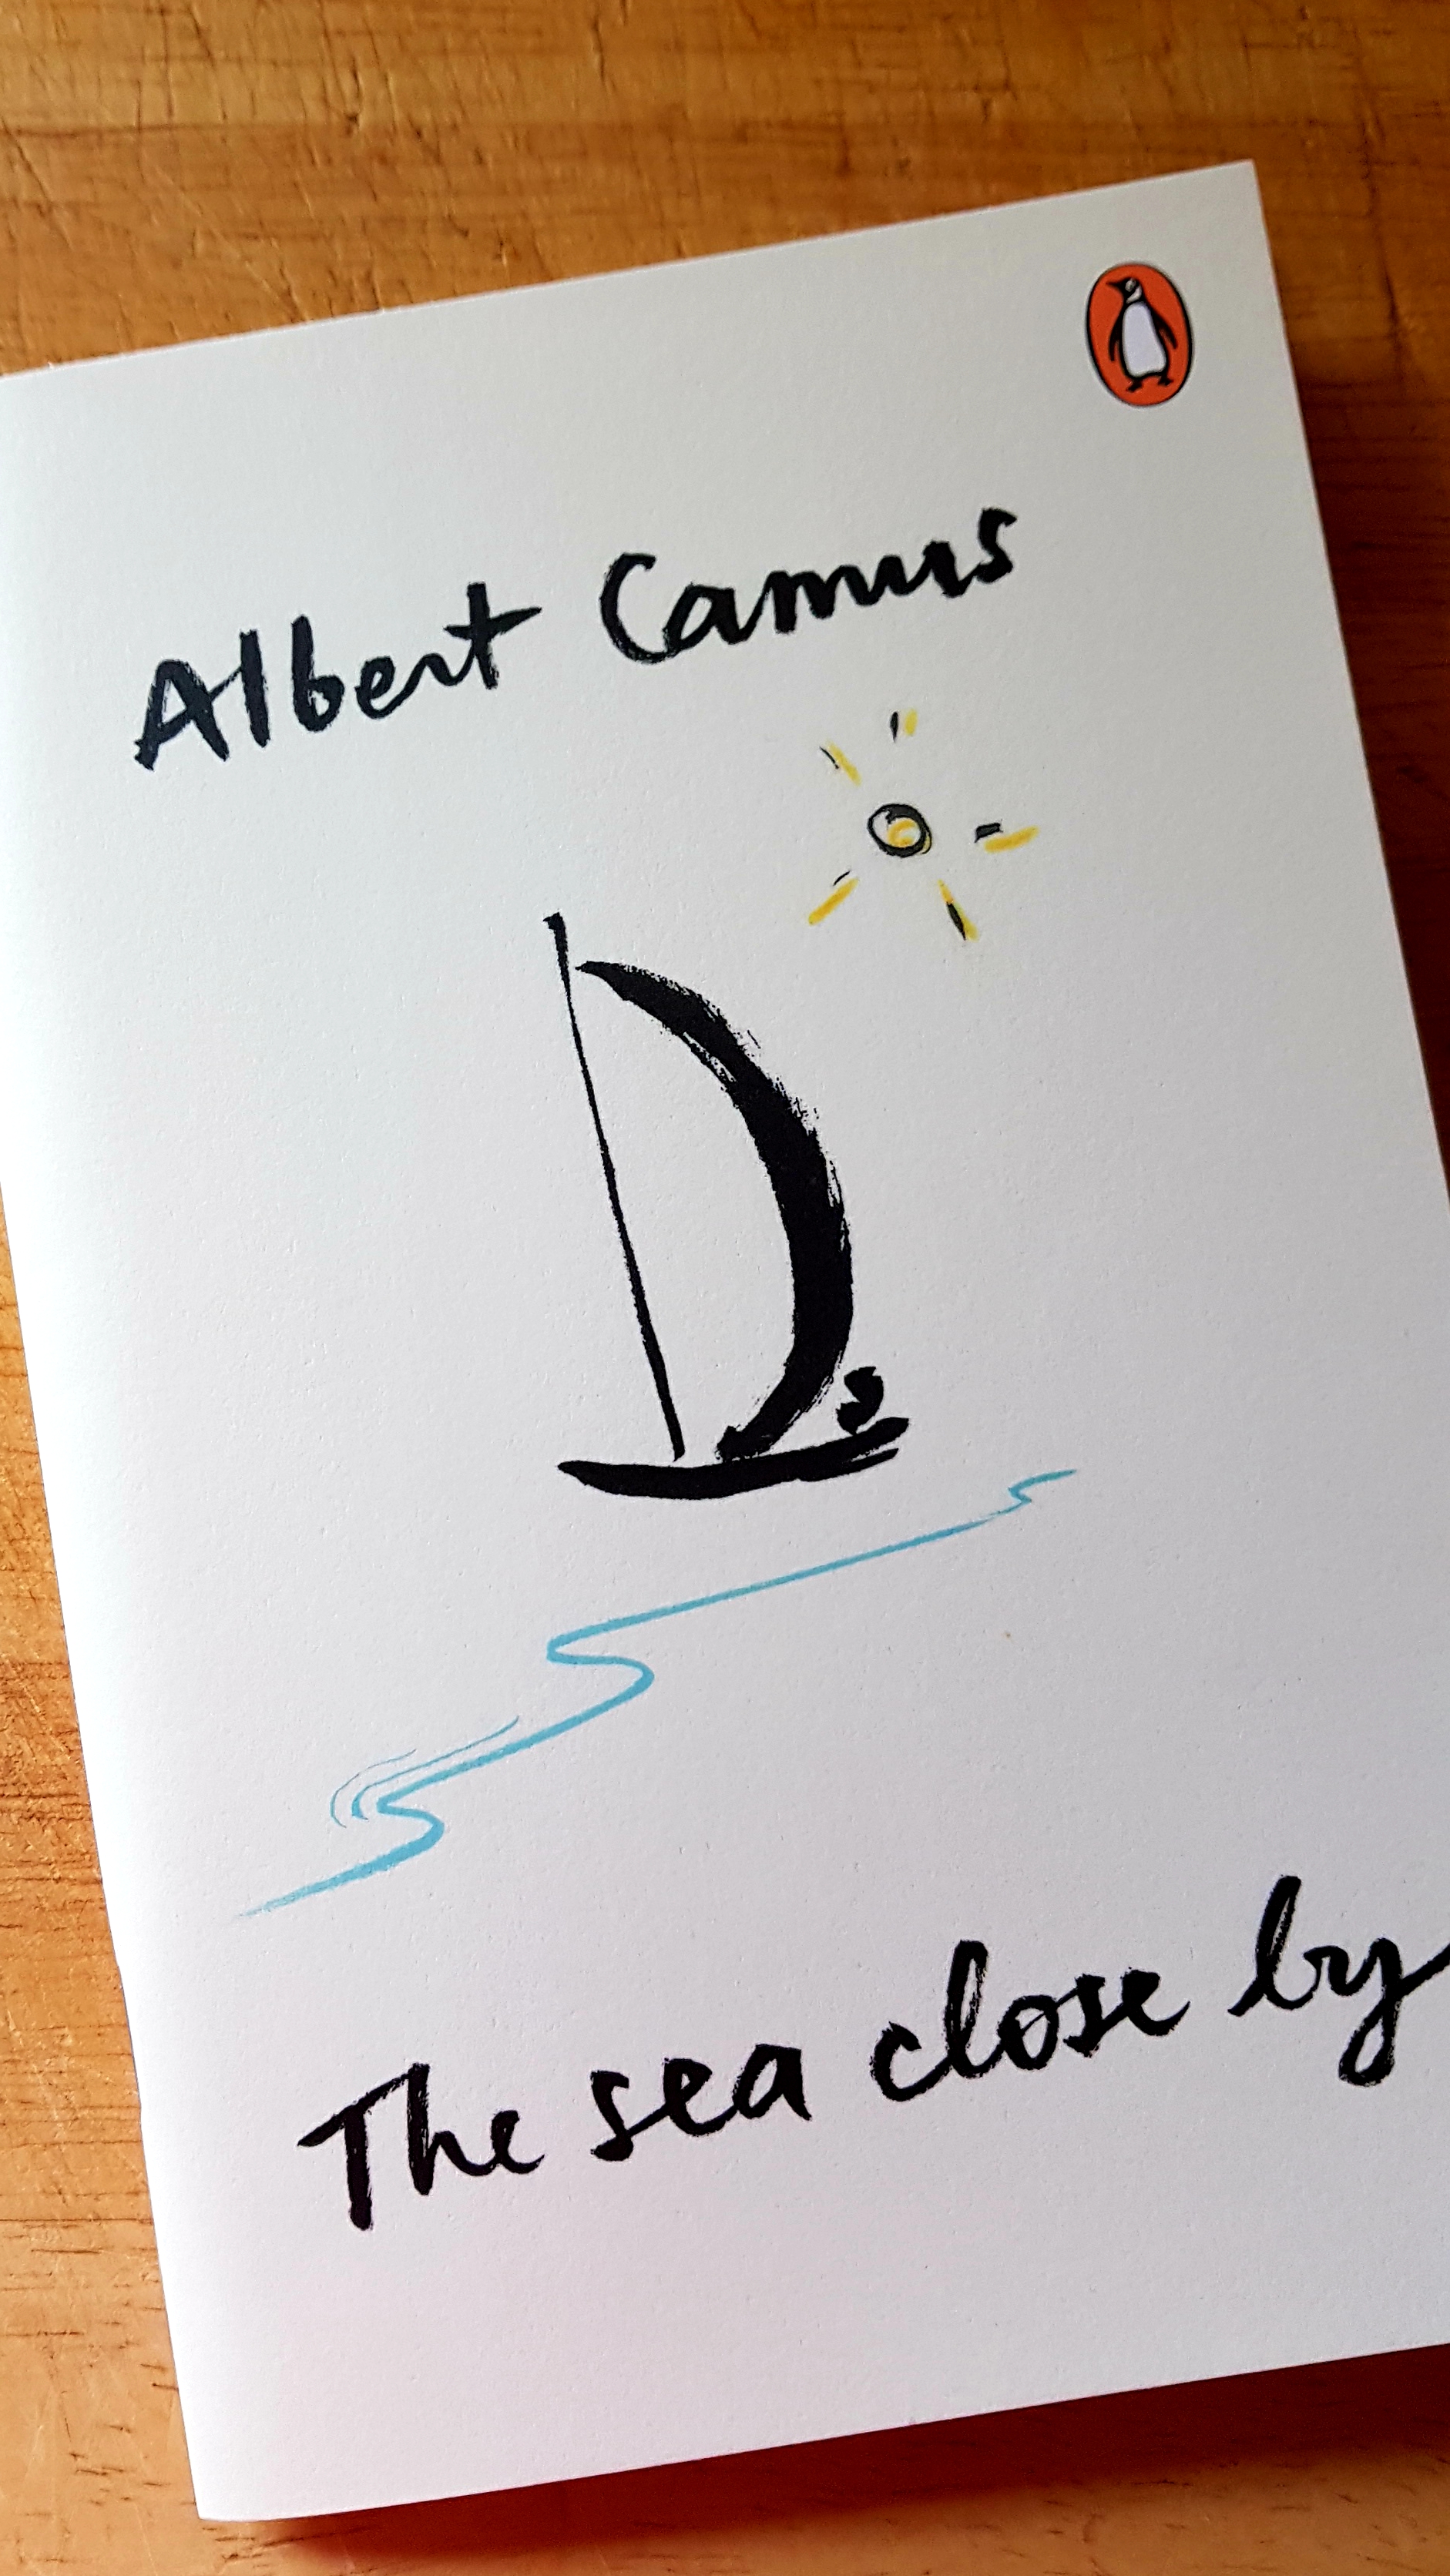 Albert Camus
The sea close by